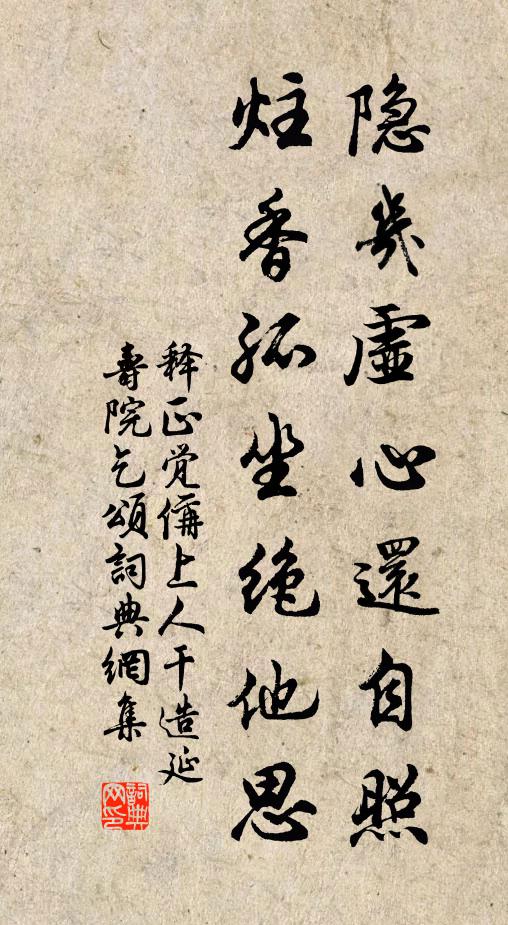 隐几虚心還自照
炷香孤坐绝他思
释正觉俌上人干造延
壽院乞頌詞典網集
詞典
网印